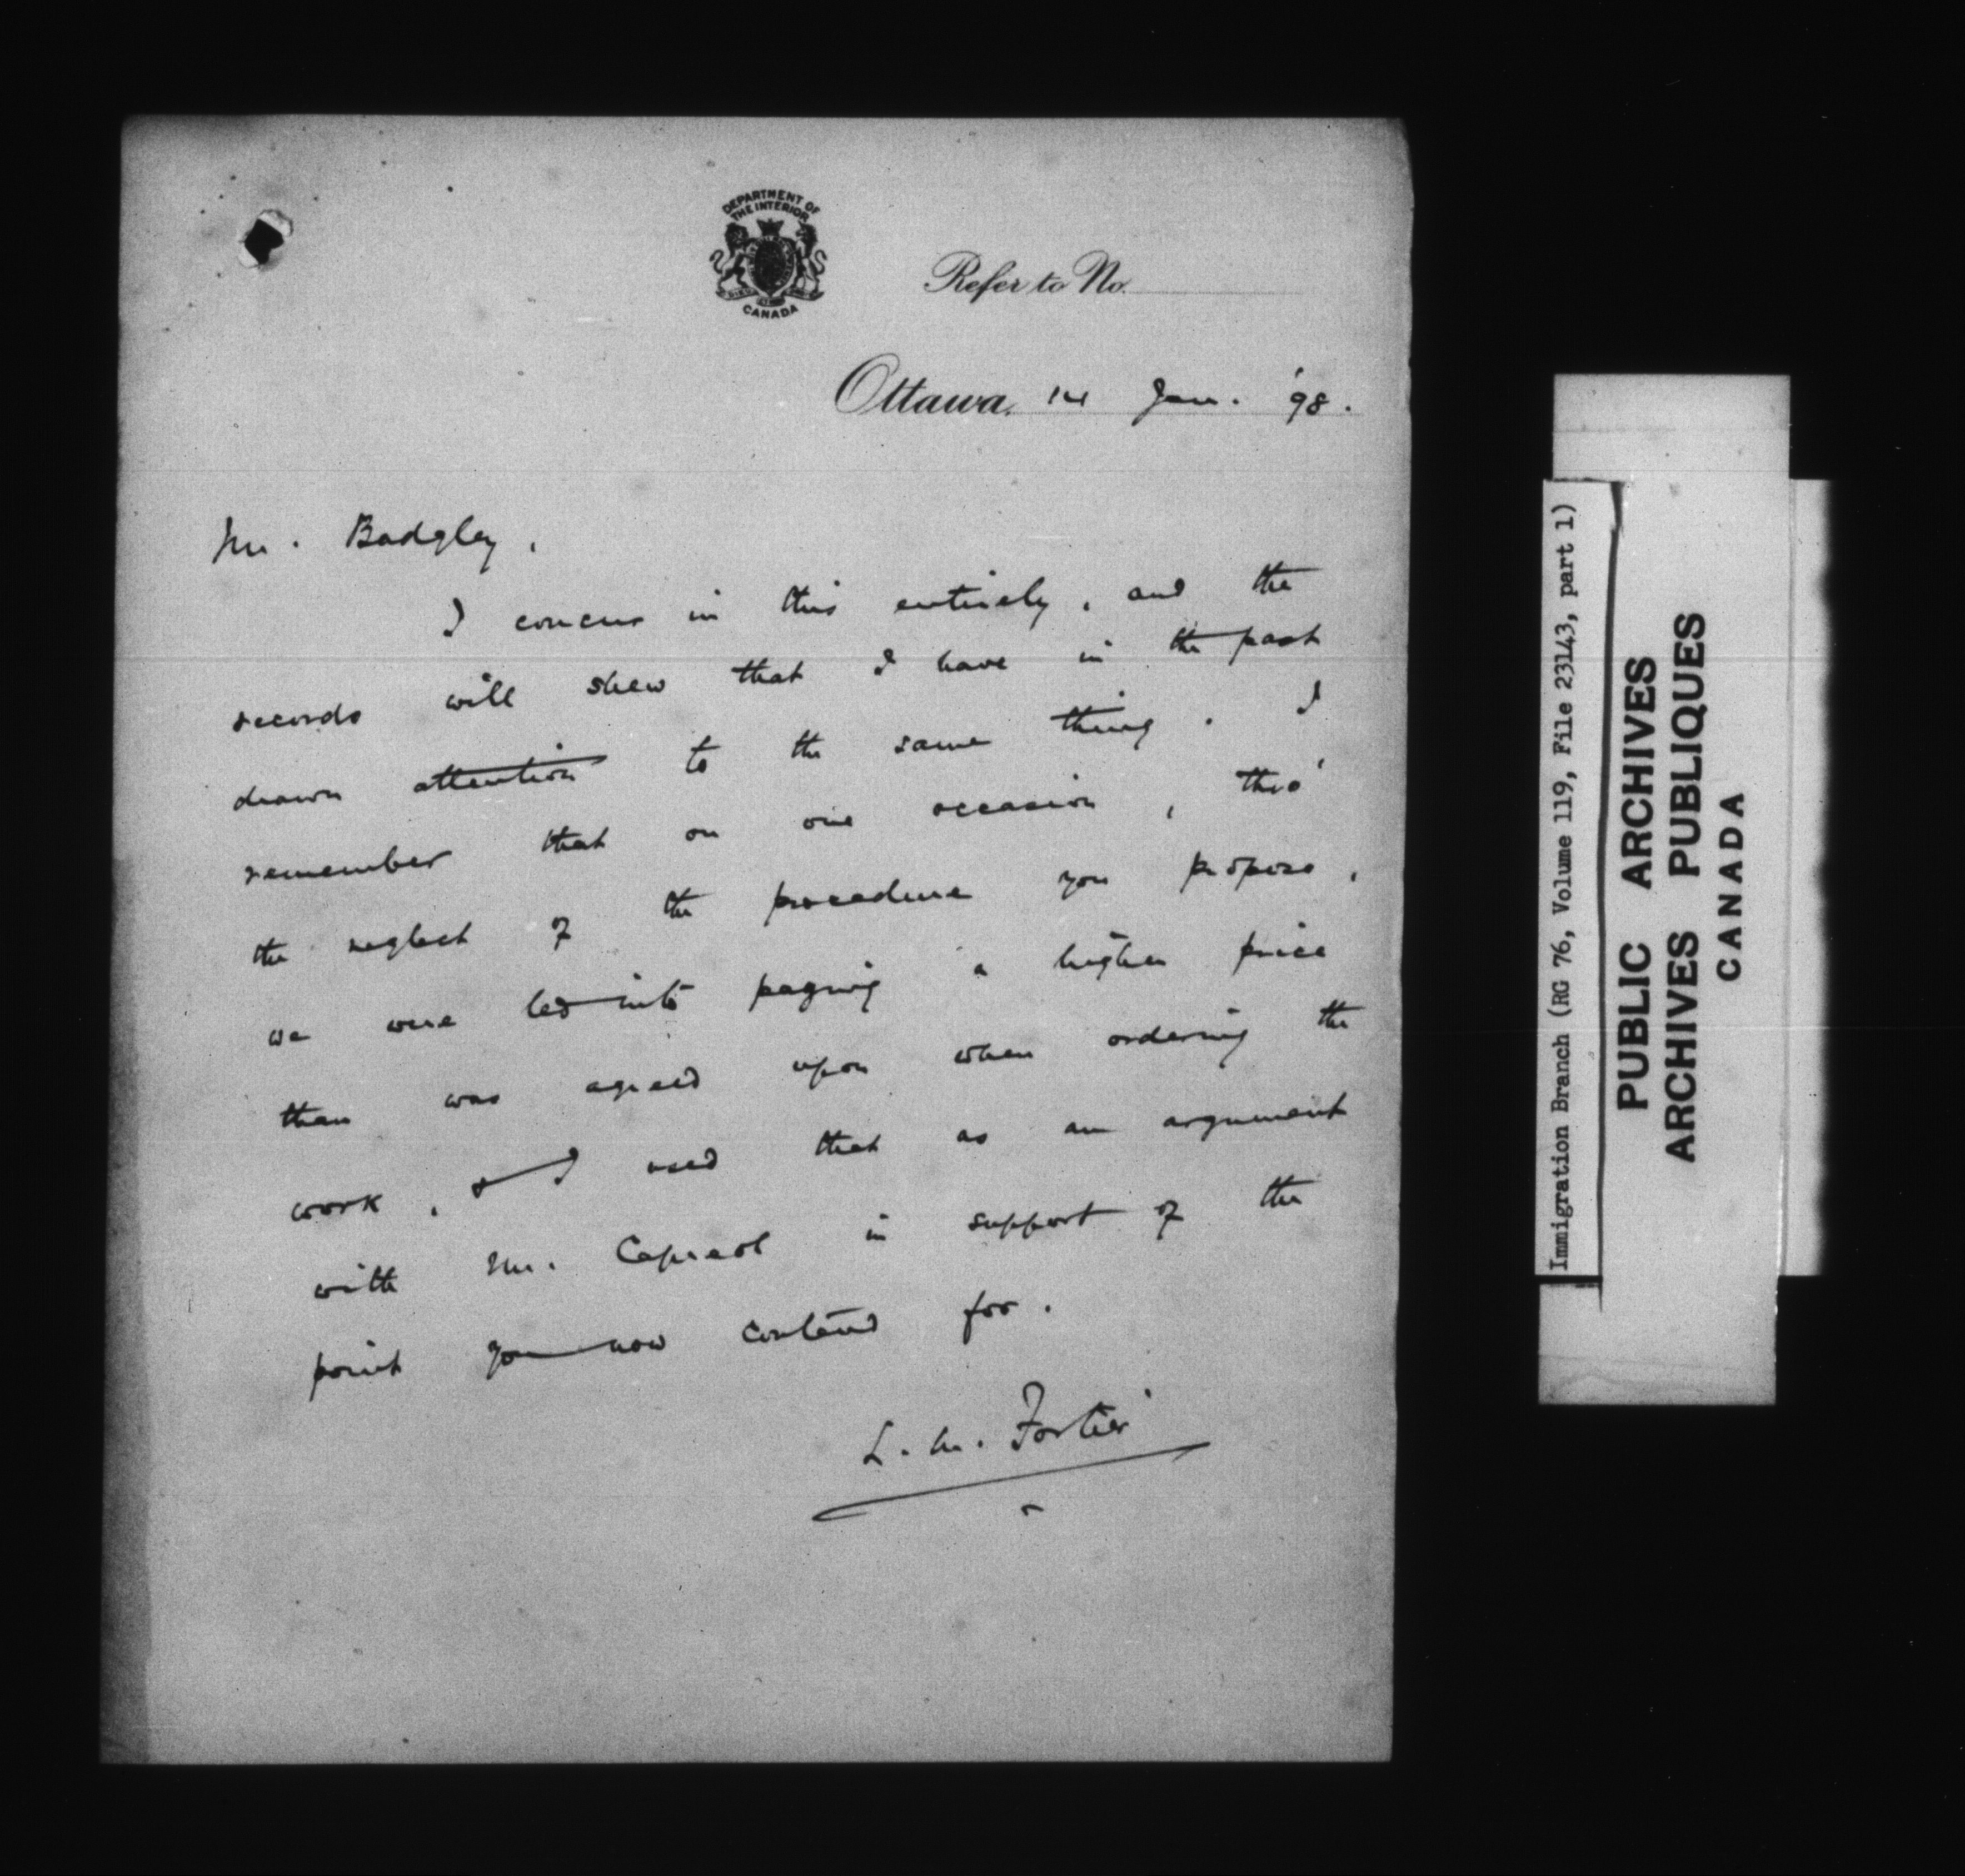 DEPARTMENT OF
THE INTERIOR
CANADA
Refer to No.
Ottawa, 14 Jan. '98.
Mr. Badgley,
I concur in this entirely, and the
records will shew that I have in the past
drawn attention to the same thing. I
remember that on one occasion, thro'
the neglect of the procedure you propose,
we were led into paying a higher price
than was agreed upon when ordering the
work, & I used that as an argument
with Mr. Capreol in support of the
point you now contend for.
L. M. Fortier
Immigration Branch (RG 76, Volume 119, File 23143, part 1)
PUBLIC ARCHIVES
ARCHIVES PUBLIQUES
CANADA